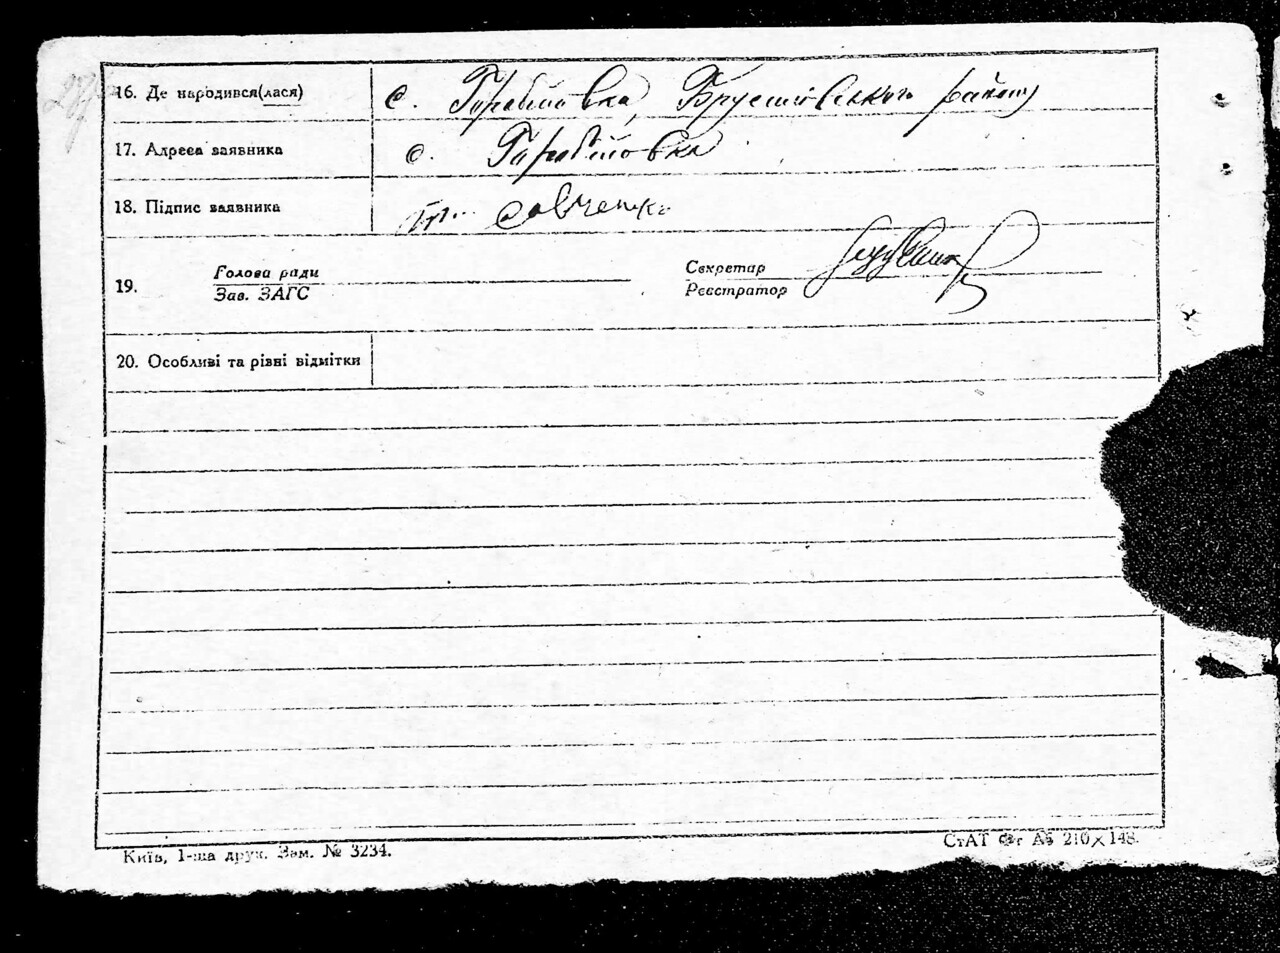 16. Де народився(лася) с. Грабівка, Брусилівського району
17. Адреса заявника с. Грабівка
18. Підпис заявника Савченко
19. Голова ради Секретар
Зав. ЗАГС Реєстратор
20. Особливі та рівні відмітки
Київ, 1-ша друк. Зам. № 3234.
СтАТ Фт А5 210×148.